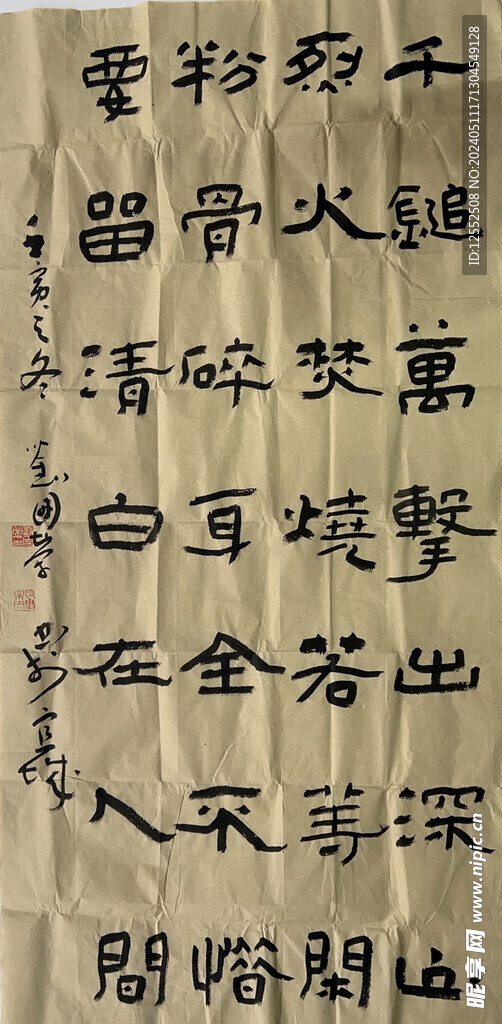 千鎚萬擊出深山
烈火焚燒若等閑
粉骨碎身全不惜
要留清白在人間
壬寅之冬
ID:12552508 NO:20240511171304549128
昵享网 www.nipic.cn